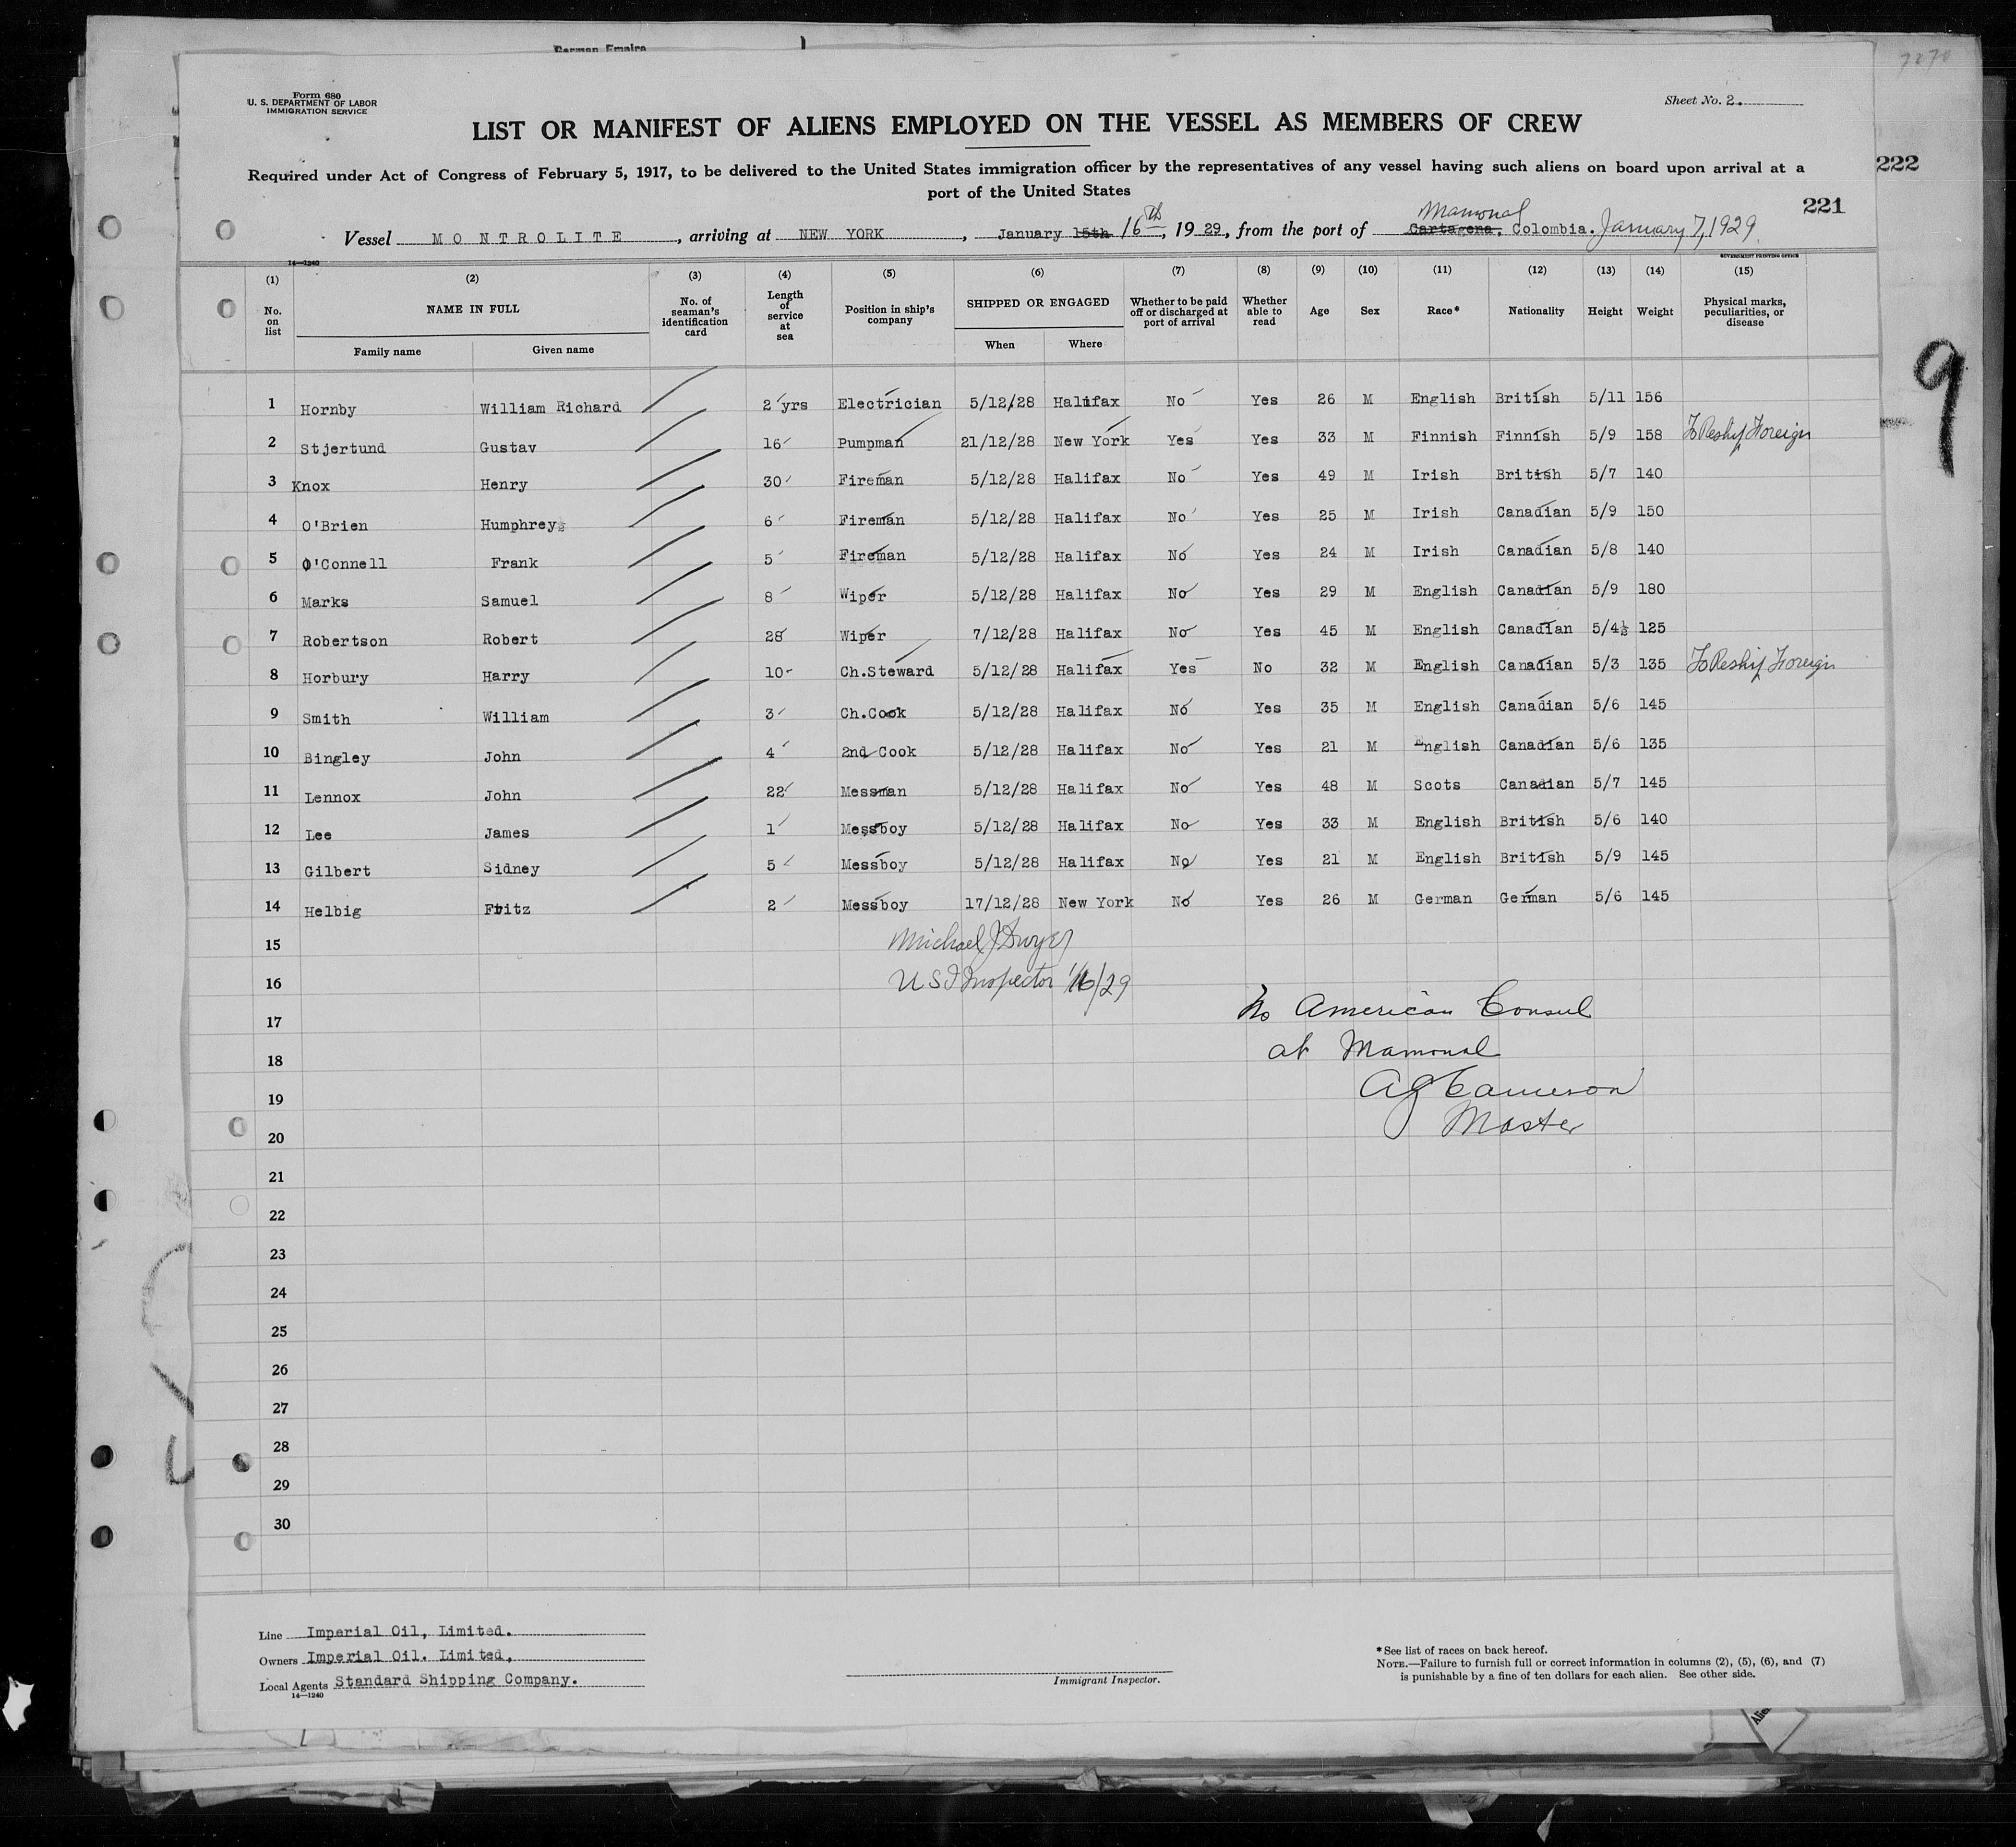 German Empire
7270
Form 680
U. S. DEPARTMENT OF LABOR
IMMIGRATION SERVICE
Sheet No. 2.
LIST OR MANIFEST OF ALIENS EMPLOYED ON THE VESSEL AS MEMBERS OF CREW
Required under Act of Congress of February 5, 1917, to be delivered to the United States immigration officer by the representatives of any vessel having such aliens on board upon arrival at a
port of the United States
222
221
Vessel MONTROLITE, arriving at NEW YORK, January 15th 16th, 1929, from the port of Cartagena, Mamonal Colombia. January 7, 1929.
14—1240
GOVERNMENT PRINTING OFFICE
(1) (2) (3) (4) (5) (6) (7) (8) (9) (10) (11) (12) (13) (14) (15)
No. on list NAME IN FULL Family name Given name No. of seaman's identification card Length of service at sea Position in ship's company SHIPPED OR ENGAGED When Where Whether to be paid off or discharged at port of arrival Whether able to read Age Sex Race* Nationality Height Weight Physical marks, peculiarities, or disease
1 Hornby William Richard 2 yrs Electrician 5/12/28 Halifax No Yes 26 M English British 5/11 156
2 Stjertund Gustav 16 Pumpman 21/12/28 New York Yes Yes 33 M Finnish Finnish 5/9 158 To Reship Foreign
3 Knox Henry 30 Fireman 5/12/28 Halifax No Yes 49 M Irish British 5/7 140
4 O'Brien Humphrey 6 Fireman 5/12/28 Halifax No Yes 25 M Irish Canadian 5/9 150
5 O'Connell Frank 5 Fireman 5/12/28 Halifax No Yes 24 M Irish Canadian 5/8 140
6 Marks Samuel 8 Wiper 5/12/28 Halifax No Yes 29 M English Canadian 5/9 180
7 Robertson Robert 28 Wiper 7/12/28 Halifax No Yes 45 M English Canadian 5/4½ 125
8 Horbury Harry 10 Ch.Steward 5/12/28 Halifax Yes No 32 M English Canadian 5/3 135 To Reship Foreign
9 Smith William 3 Ch.Cook 5/12/28 Halifax No Yes 35 M English Canadian 5/6 145
10 Bingley John 4 2nd Cook 5/12/28 Halifax No Yes 21 M English Canadian 5/6 135
11 Lennox John 22 Messman 5/12/28 Halifax No Yes 48 M Scots Canadian 5/7 145
12 Lee James 1 Messboy 5/12/28 Halifax No Yes 33 M English British 5/6 140
13 Gilbert Sidney 5 Messboy 5/12/28 Halifax No Yes 21 M English British 5/9 145
14 Helbig Fritz 2 Messboy 17/12/28 New York No Yes 26 M German German 5/6 145
15 Michael J Dwyer
16 U S I Inspector 1/16/29
17 No American Consul
18 at Mamonal
19 A G Cameron
20 Master
21
22
23
24
25
26
27
28
29
30
9
Line Imperial Oil, Limited.
Owners Imperial Oil. Limited,
Local Agents Standard Shipping Company.
14—1240
Immigrant Inspector.
*See list of races on back hereof.
NOTE.—Failure to furnish full or correct information in columns (2), (5), (6), and (7)
is punishable by a fine of ten dollars for each alien. See other side.